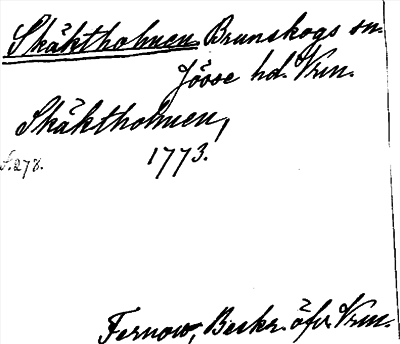 Skäktholmen Brunskogs sn.
Jösse hd. Vrm.
Skäktholmen,
1773.
s. 278.
Fernow, Beskr. öfver Vrm.